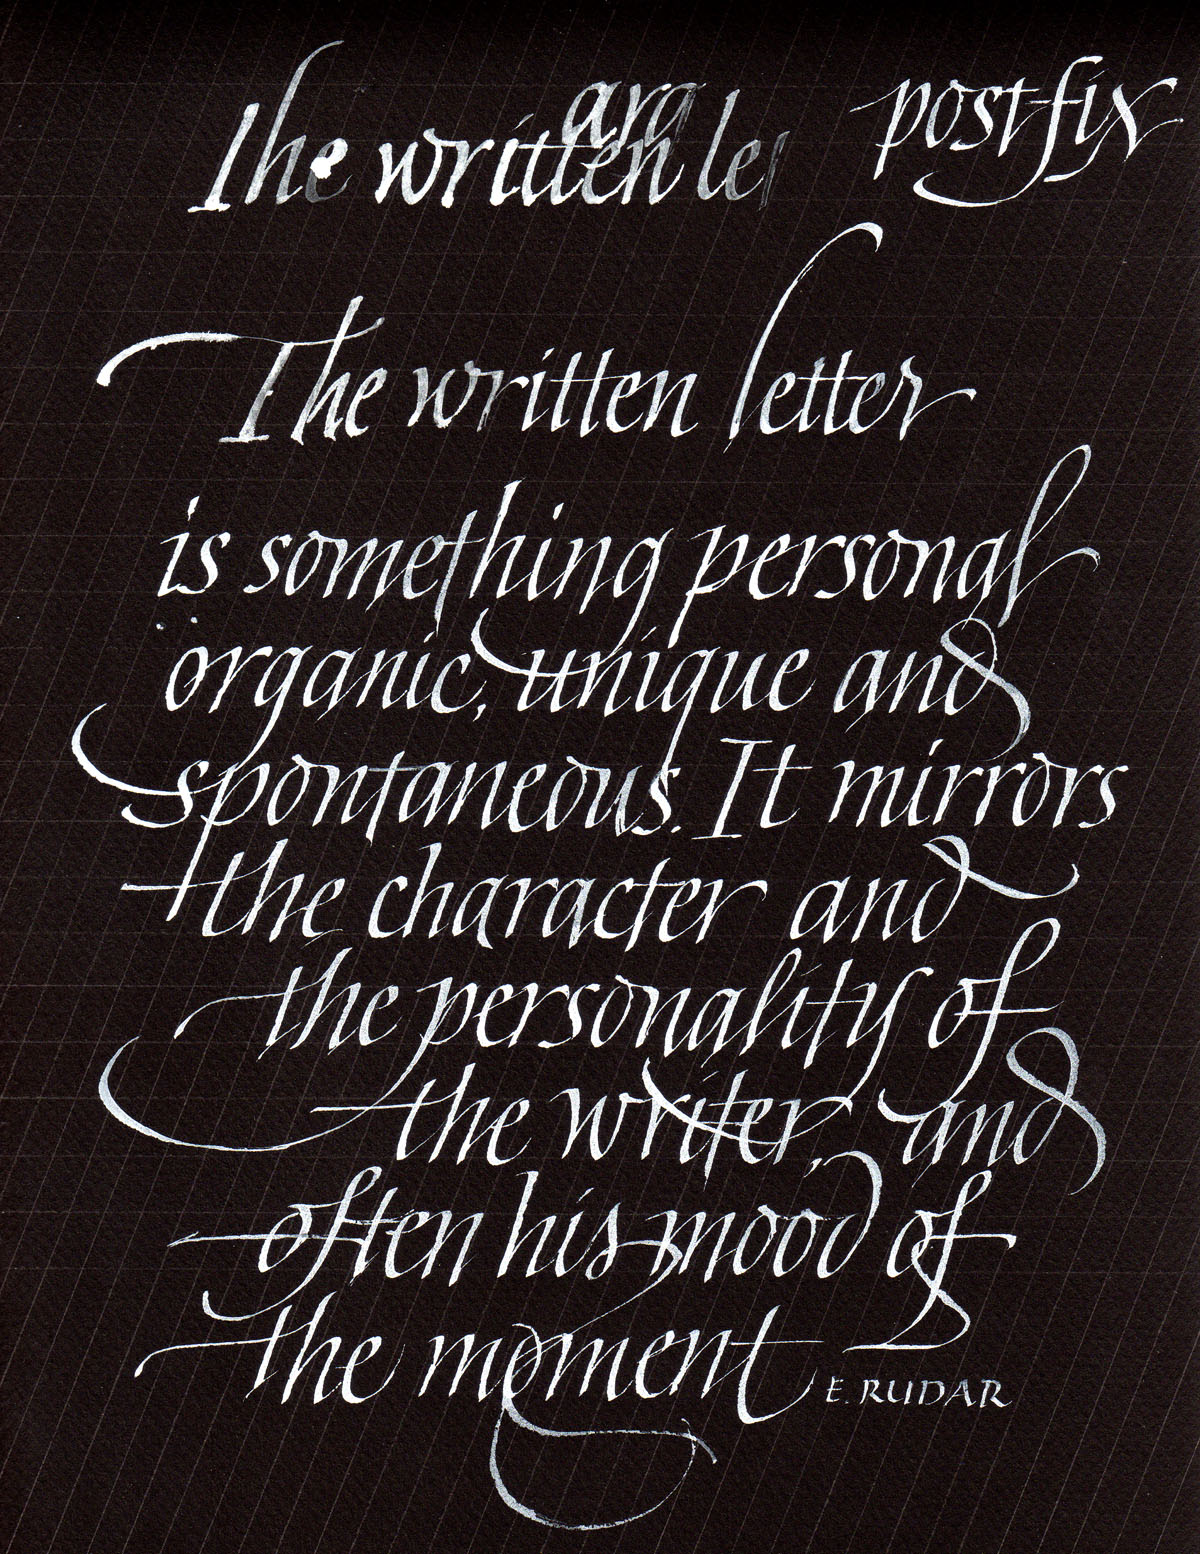 ara
The written le
postfix
The written letter
is something personal
organic, unique and
spontaneous. It mirrors
the character and
the personality of
the writer, and
often his mood of
the moment
E. RUDAR